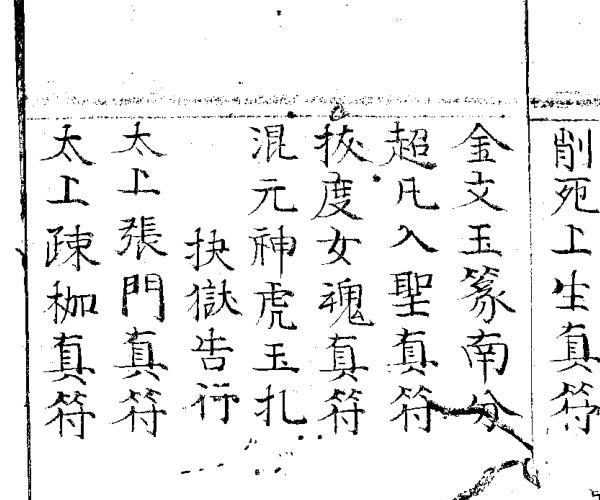 削死上生真符
金文玉篆南分
超凡入聖真符
拔度女魂真符
混元神虎玉扎
抉獄告行
太上張門真符
太上踈枷真符